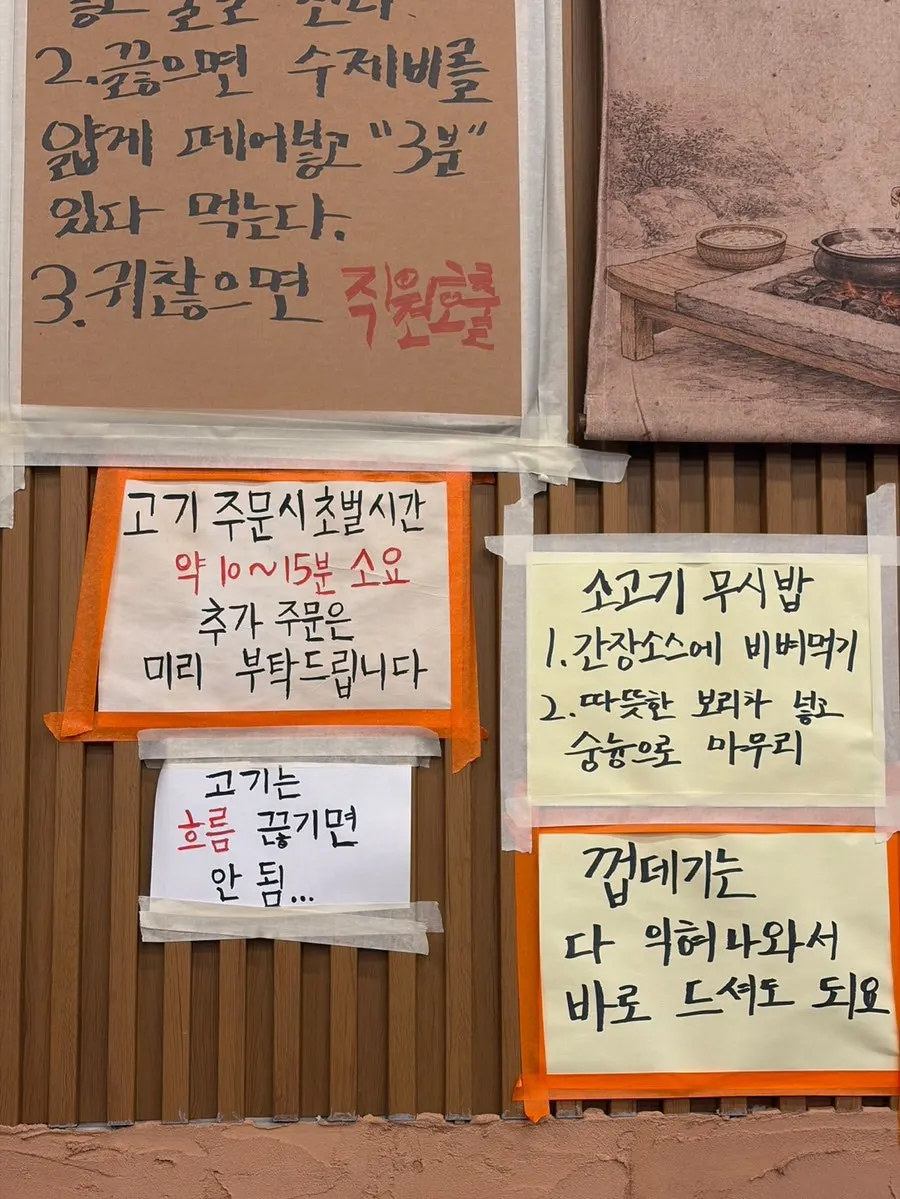 2. 끓으면 수제비를
얇게 떼어넣고 "3분"
있다 먹는다.
3. 귀찮으면 직원호출
고기 주문시 초벌시간
약 10~15분 소요
추가 주문은
미리 부탁드립니다
고기는
흐름 끊기면
안 됨...
소고기 무시밥
1. 간장소스에 비벼먹기
2. 따뜻한 보리차 넣고
숭늉으로 마무리
껍데기는
다 익혀나와서
바로 드셔도 되요